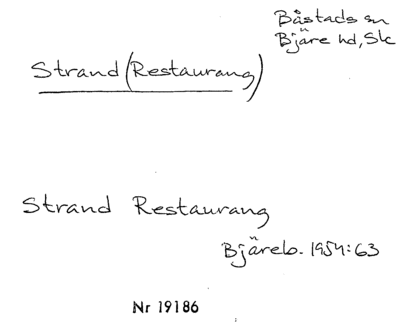 Båstads sn
Bjäre hd, Skc
Strand (Restaurang)
Strand Restaurang
Bjäreb. 1954:63
Nr 19186